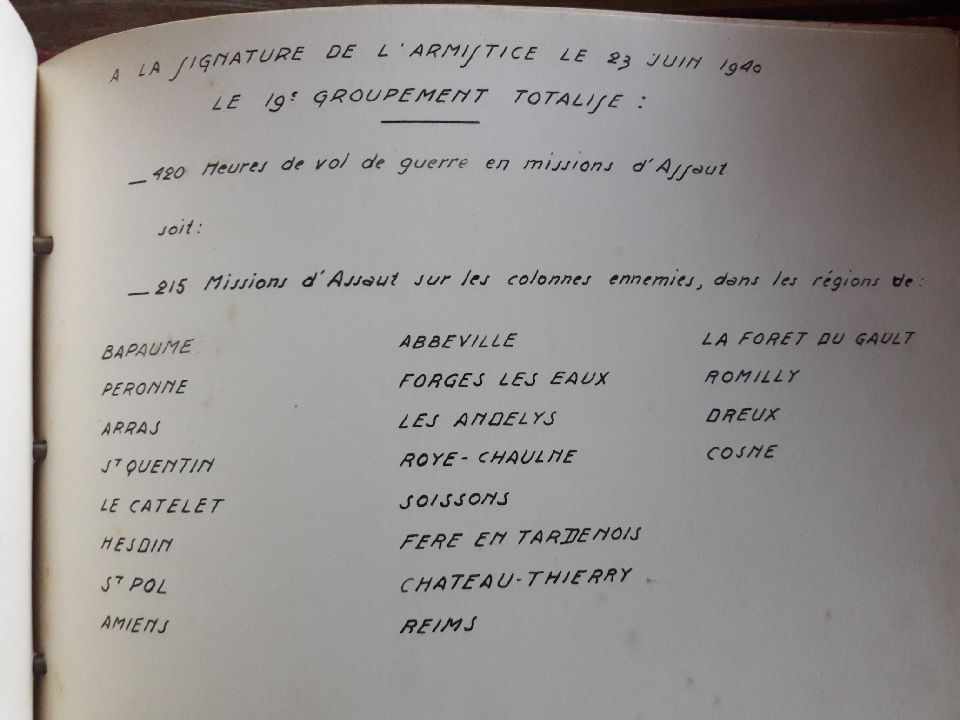 A LA SIGNATURE DE L'ARMISTICE LE 23 JUIN 1940
LE 19e GROUPEMENT TOTALISE :
_ 420 Heures de vol de guerre en missions d'Assaut
soit :
_ 215 Missions d'Assaut sur les colonnes ennemies, dans les régions de :
BAPAUME
PERONNE
ARRAS
St QUENTIN
LE CATELET
HESDIN
St POL
AMIENS
ABBEVILLE
FORGES LES EAUX
LES ANDELYS
ROYE - CHAULNE
SOISSONS
FERE EN TARDENOIS
CHATEAU-THIERRY
REIMS
LA FORET DU GAULT
ROMILLY
DREUX
COSNE